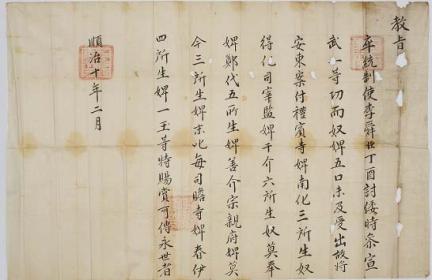 教旨
卒統制使李舜臣丁酉討倭時參宣
武一等功而奴婢五口未及受出故將
安東案付禮賓寺婢南化三所生奴
得化司宰監婢千介六所生奴莫奉
婢鄭代五所生婢善介宗親府婢莫
今三所生婢 每司贍寺婢春伊
四所生婢一玉等特賜賞可傳永世者
順治十年二月